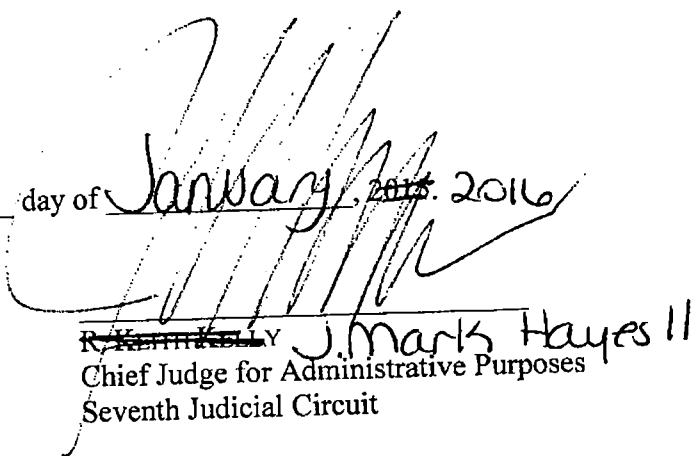 day of January, 2015. 2016
R. KEITH KELLY J. Mark Hayes II
Chief Judge for Administrative Purposes
Seventh Judicial Circuit